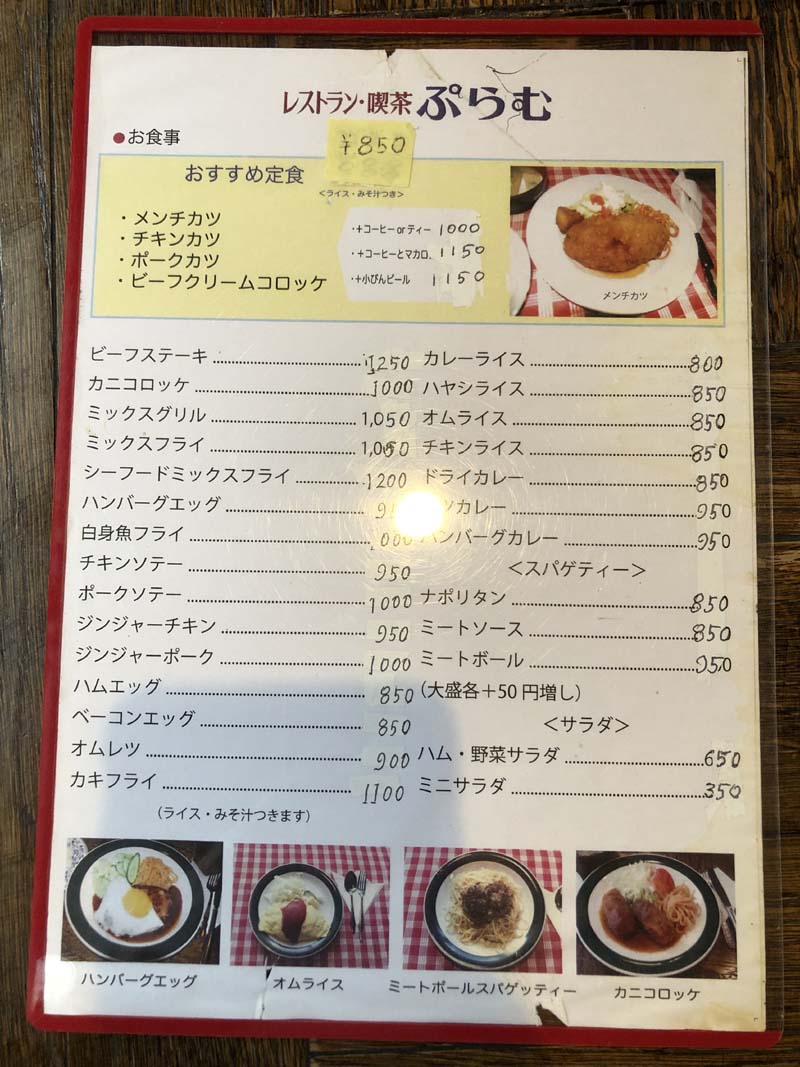 レストラン・喫茶 ぷらむ
●お食事
¥850
おすすめ定食
＜ライス・みそ汁つき＞
・メンチカツ
・チキンカツ
・ポークカツ
・ビーフクリームコロッケ
・+コーヒー or ティー 1000
・+コーヒーとマカロ. 1150
・+小びんビール 1150
メンチカツ
ビーフステーキ 1250
カニコロッケ 1000
ミックスグリル 1,050
ミックスフライ 1,050
シーフードミックスフライ 1200
ハンバーグエッグ
白身魚フライ 1000
チキンソテー 950
ポークソテー 1000
ジンジャーチキン 950
ジンジャーポーク 1000
ハムエッグ 850
ベーコンエッグ 850
オムレツ 900
カキフライ 1100
（ライス・みそ汁つきます）
カレーライス 800
ハヤシライス 850
オムライス 850
チキンライス 850
ドライカレー 850
ツカレー 950
ハンバーグカレー 950
＜スパゲティー＞
ナポリタン 850
ミートソース 850
ミートボール 950
（大盛各＋50 円増し）
＜サラダ＞
ハム・野菜サラダ 650
ミニサラダ 350
ハンバーグエッグ
オムライス
ミートボールスパゲッティー
カニコロッケ